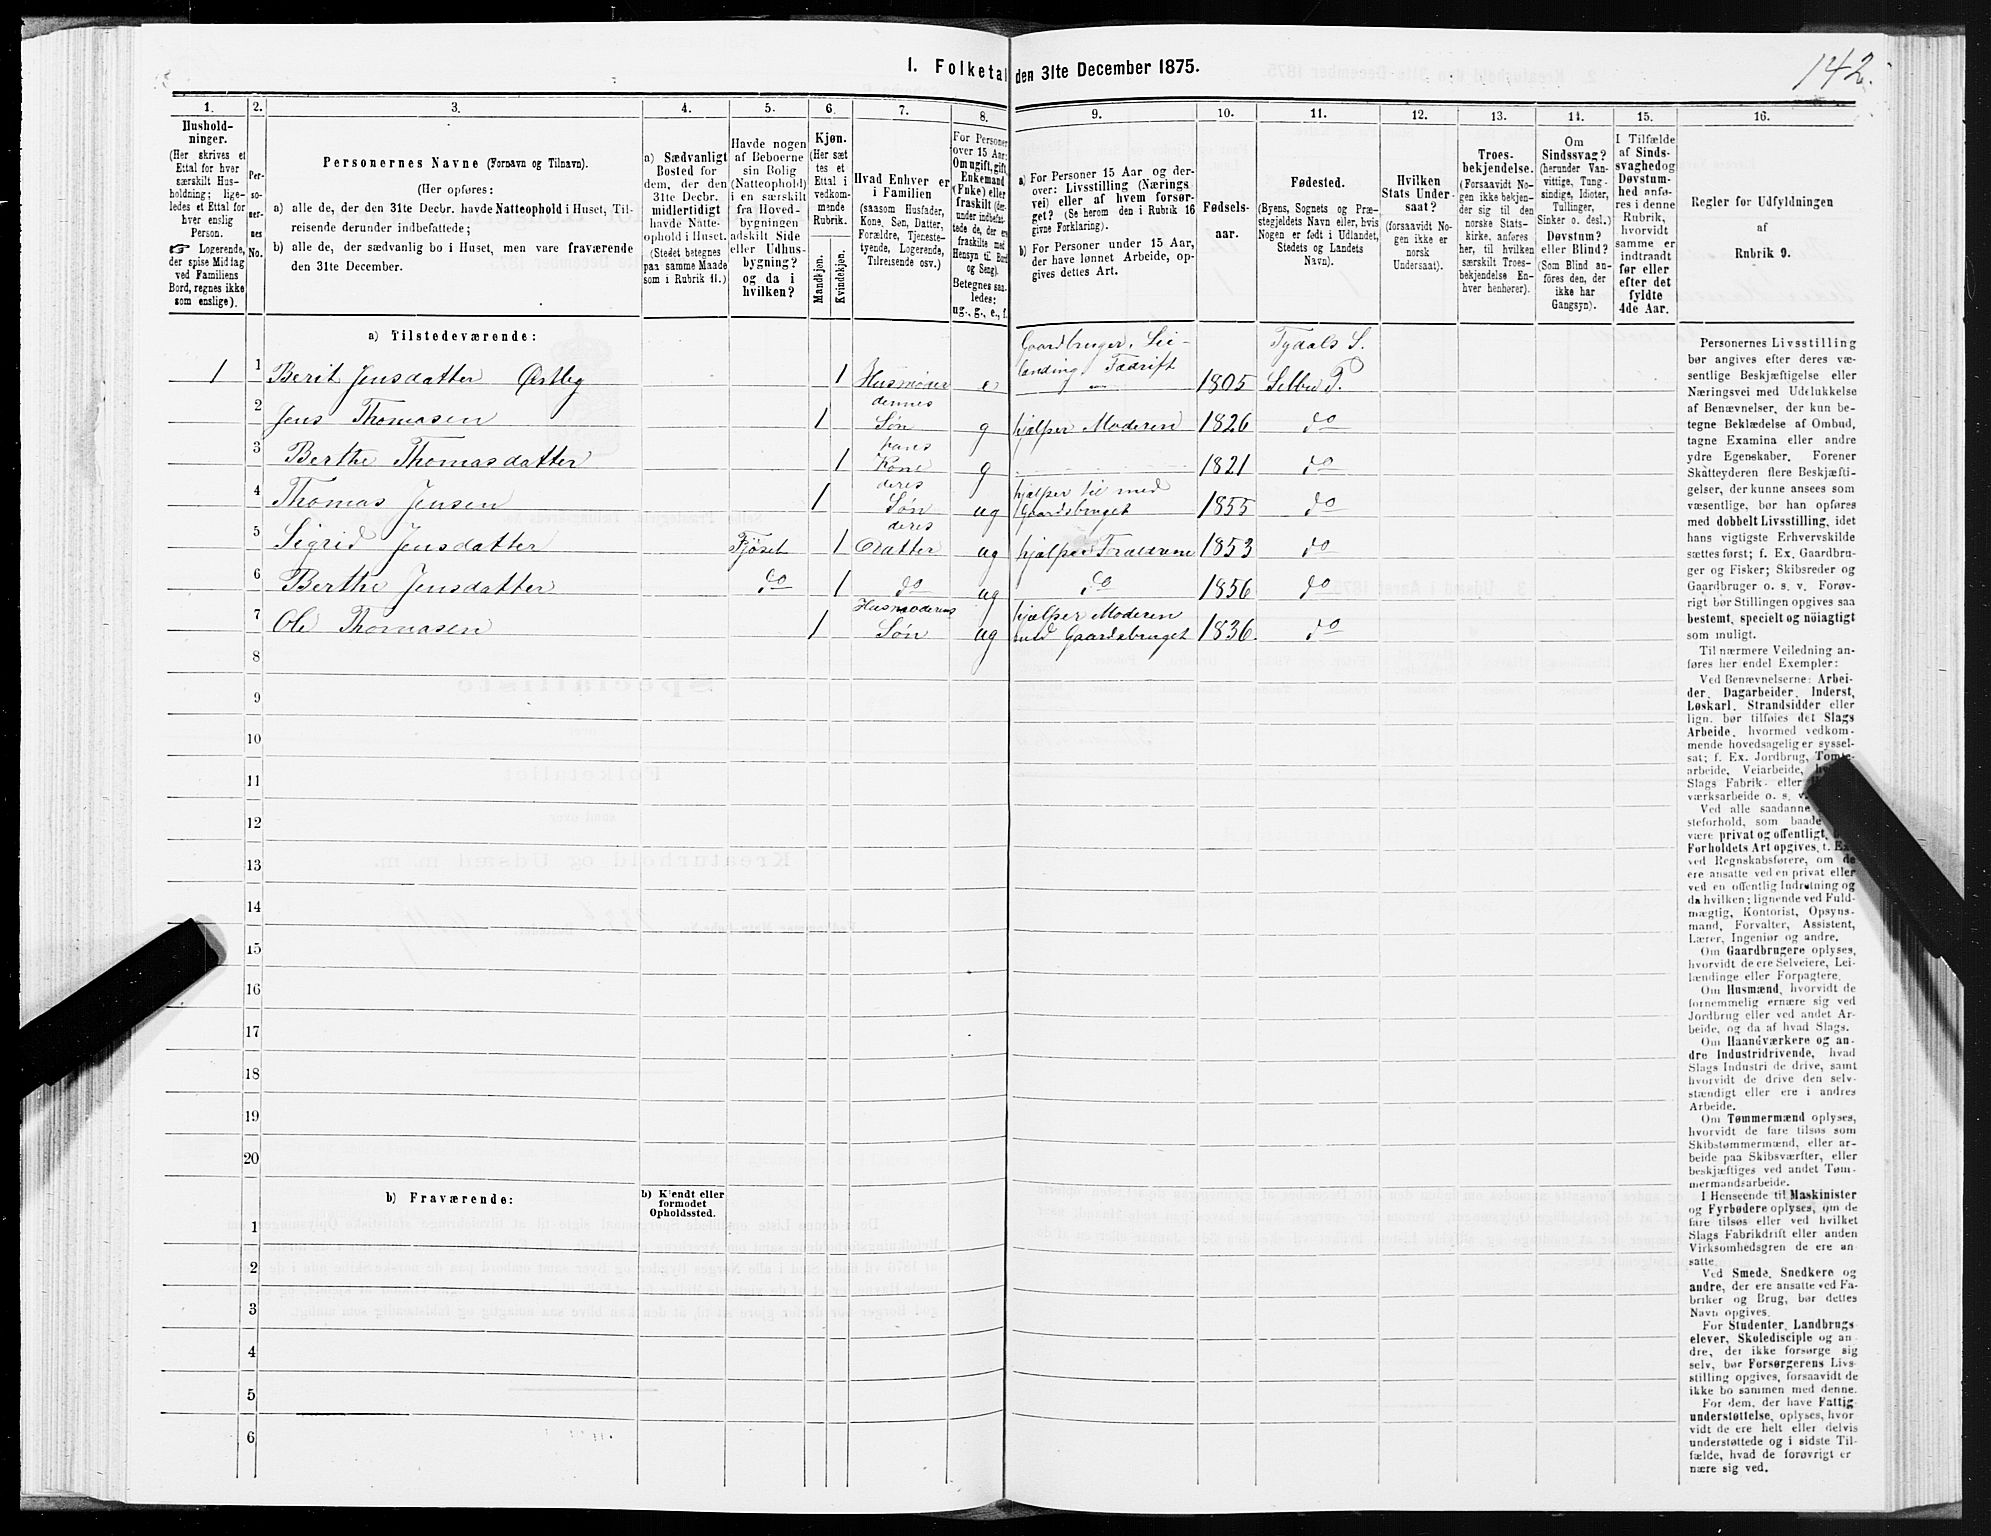 142.
I. Folketal den 31te December 1875.
1. 2. 3. 4. 5. 6. 7. 8. 9. 10. 11. 12. 13. 14. 15. 16.
Hushold-
ninger.
(Her skrives et
Ettal for hver
særskilt Hus-
holdning; lige-
ledes et Ettal for
hver enslig
Person.
☞ Logerende,
der spise Middag
ved Familiens
Bord, regnes ikke
som enslige).
Per-
so-
ner-
nes
No.
Personernes Navne (Fornavn og Tilnavn).
(Her opføres:
a) alle de, der den 31te Decbr. havde Natteophold i Huset, Til-
reisende derunder indbefattede;
b) alle de, der sædvanlig bo i Huset, men vare fraværende
den 31te December.
a) Sædvanligt
Bosted for
dem, der den
31te Decbr.
midlertidigt
havde Natte-
ophold i Huset.
(Stedet betegnes
paa samme Maade
som i Rubrik 11.)
Havde nogen
af Beboerne
sin Bolig
(Natteophold)
i en særskilt
fra Hoved-
bygningen
adskilt Side
eller Udhus-
bygning?
og da i
hvilken?
Kjøn.
(Her sæt
tes et
Ettal i
vedkom-
mende
Rubrik.
Mandkjøn.
Kvindekjøn.
Hvad Enhver er
i Familien
(saasom Husfader,
Kone, Søn, Datter,
Forældre, Tjeneste-
tyende, Logerende,
Tilreisende osv.)
For Personer
over 15 Aar:
Om ugift, gift,
Enkemand
(Enke) eller
fraskilt (der-
under indbefat-
tede de, der ere
fraskilte med
Hensyn til Bord
og Seng).
Betegnes saa-
ledes:
ug., g., e., f.
a) For Personer 15 Aar og der-
over: Livsstilling (Nærings
vei) eller af hvem forsør-
get? (Se herom den i Rubrik 16
givne Forklaring).
b) For Personer under 15 Aar,
der have lønnet Arbeide, op-
gives dettes Art.
Fødsels-
aar.
Fødested.
(Byens, Sognets og Præ-
stegjeldets Navn eller, hvis
Nogen er født i Udlandet,
Stedets og Landets
Navn).
Hvilken
Stats Under-
saat?
(forsaavidt No-
gen ikke er
norsk
Undersaat).
Troes-
bekjendelse.
(Forsaavidt No-
gen ikke bekjen-
der sig til den
norske Stats-
kirke, anføres
her, til hvilken
særskilt Troes-
bekjendelse En-
hver henhører).
Om
Sindssvag?
(herunder Van-
vittige, Tung-
sindige, Idioter,
Tullinger,
Sinker o. desl.)
Døvstum?
eller Blind?
(Som Blind an-
føres den, der
ikke har
Gangsyn).
I Tilfælde
af Sinds-
svaghed og
Døvstum-
hed anfø-
res i denne
Rubrik,
hvorvidt
samme er
indtraadt
før eller
efter det
fyldte
4de Aar.
Regler for Udfyldningen
af
Rubrik 9.
a) Tilstedeværende:
1 1 Berit Jensdatter Østby 1 Husmoder e Gaardbruger, Lei-
lænding Fædrift 1805 Tydals S.
Selbu P.
2 Jens Thomasen 1 dennes
Søn g hjælper Moderen 1826 do
3 Berthe Thomasdatter 1 hans
Kone g 1821 do
4 Thomas Jensen 1 deres
Søn ug hjælper til med
Gaardsbruget 1855 do
5 Sigrid Jensdatter Fjöset 1 deres
Datter ug hjælper Forældrene 1853 do
6 Berthe Jensdatter do 1 do ug do 1856 do
7 Ole Thomasen 1 Husmoderens
Søn ug hjælper Moderen
med Gaardsbruget 1836 do
8
9
10
11
12
13
14
15
16
17
18
19
20
b) Fraværende:
b) Kjendt eller
formodet
Opholdssted.
1
2
3
4
5
6
Personernes Livsstilling
bør angives efter deres væ-
sentlige Beskjæftigelse eller
Næringsvei med Udelukkelse
af Benævnelser, der kun be-
tegne Beklædelse af Ombud,
tagne Examina eller andre
ydre Egenskaber. Forener
Skatteyderen flere Beskjæfti-
gelser, der kunne ansees som
væsentlige, bør han opføres
med dobbelt Livsstilling, idet
hans vigtigste Erhvervskilde
sættes først; f. Ex. Gaardbru-
ger og Fisker; Skibsreder og
Gaardbruger o. s. v. Forøv-
rigt bør Stillingen opgives saa
bestemt, specielt og nöiagtigt
som muligt.
Til nærmere Veiledning an-
føres her endel Exempler:
Ved Benævnelserne: Arbei-
der, Dagarbeider, Inderst,
Løskarl, Strandsidder eller
lign. bør tilføies det Slags
Arbeide, hvormed vedkom-
mende hovedsagelig er syssel-
sat; f. Ex. Jordbrug, Tomte-
arbeide, Veiarbeide,
Slags Fabrik- eller
værksarbeide o. s. v.
Ved alle saadanne
steforhold, som baade
være privat og offentligt,
Forholdets Art opgives, t. Ex.
ved Regnskabsførere, om de
ere ansatte ved en privat eller
ved en offentlig Indretning og
da hvilken; lignende ved Fuld-
mægtig, Kontorist, Opsyns-
mand, Forvalter, Assistent,
Lærer, Ingeniør og andre.
Om Gaardbrugere oplyses,
hvorvidt de ere Selveiere, Lei-
lændinge eller Forpagtere.
Om Husmænd, hvorvidt de
fornemmelig ernære sig ved
Jordbrug eller ved andet Ar-
beide, og da af hvad Slags.
Om Haandværkere og an-
dre Industridrivende, hvad
Slags Industri de drive, samt
hvorvidt de drive den selv-
stændigt eller ere i andres
Arbeide.
Om Tømmermænd oplyses,
hvorvidt de fare tilsøs som
Skibstømmermænd, eller ar-
beide paa Skibsværfter, eller
beskjæftiges ved andet Tøm-
mermandsarbeide.
I Henseende til Maskinister
og Fyrbødere oplyses, om de
fare tilsøs eller ved hvilket
Slags Fabrikdrift eller anden
Virksomhedsgren de ere an-
satte.
Ved Smede, Snedkere og
andre, der ere ansatte ved Fa-
briker og Brug, bør dettes
Navn opgives.
For Studenter, Landbrugs-
elever, Skoledisciple og an-
dre, der ikke forsørge sig
selv, bør Forsørgerens Livs-
stilling opgives, forsaavidt de
ikke bo sammen med denne.
For dem, der have Fattig-
understøttelse, oplyses, hvor-
vidt de ere helt eller delvis
understøttede og i sidste Til-
fælde, hvad de forøvrigt er-
nære sig ved.